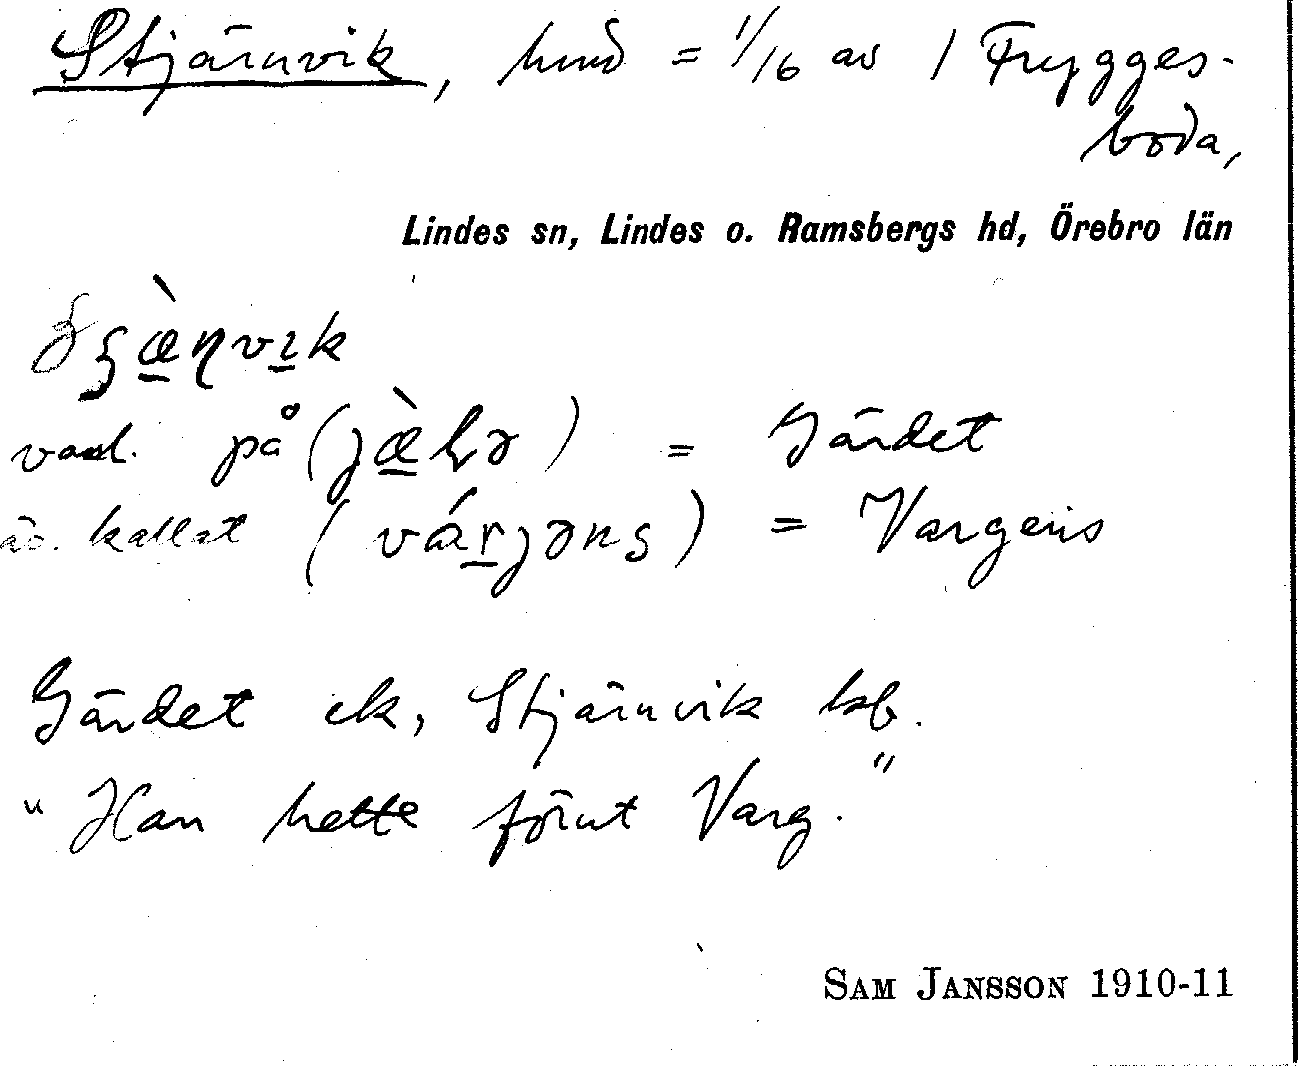 Stjärnvik, hmd = 1/16 av 1 Frygges-
boda,
Lindes sn, Lindes o. Ramsbergs hd, Örebro län
vard. på () = Gärdet
äv. kallat () = Vargens
Gärdet ek, Stjärnvik kb.
"Han hette förut Varg."
SAM JANSSON 1910-11